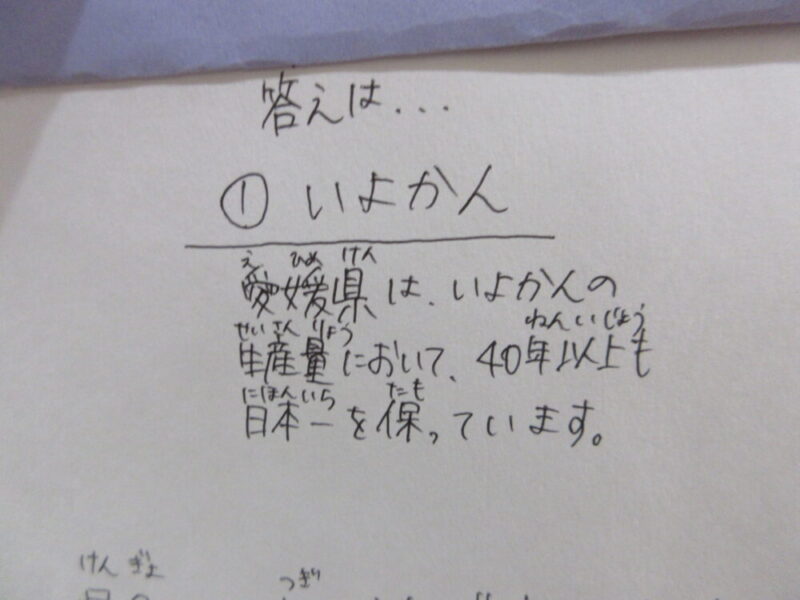 答えは...
① いよかん
え ひめ けん
愛媛県は、いよかんの
せいさんりょう ねんいじょう
生産量において、40年以上も
にほんいち たも
日本一を保っています。
けん ぎょ
つぎ